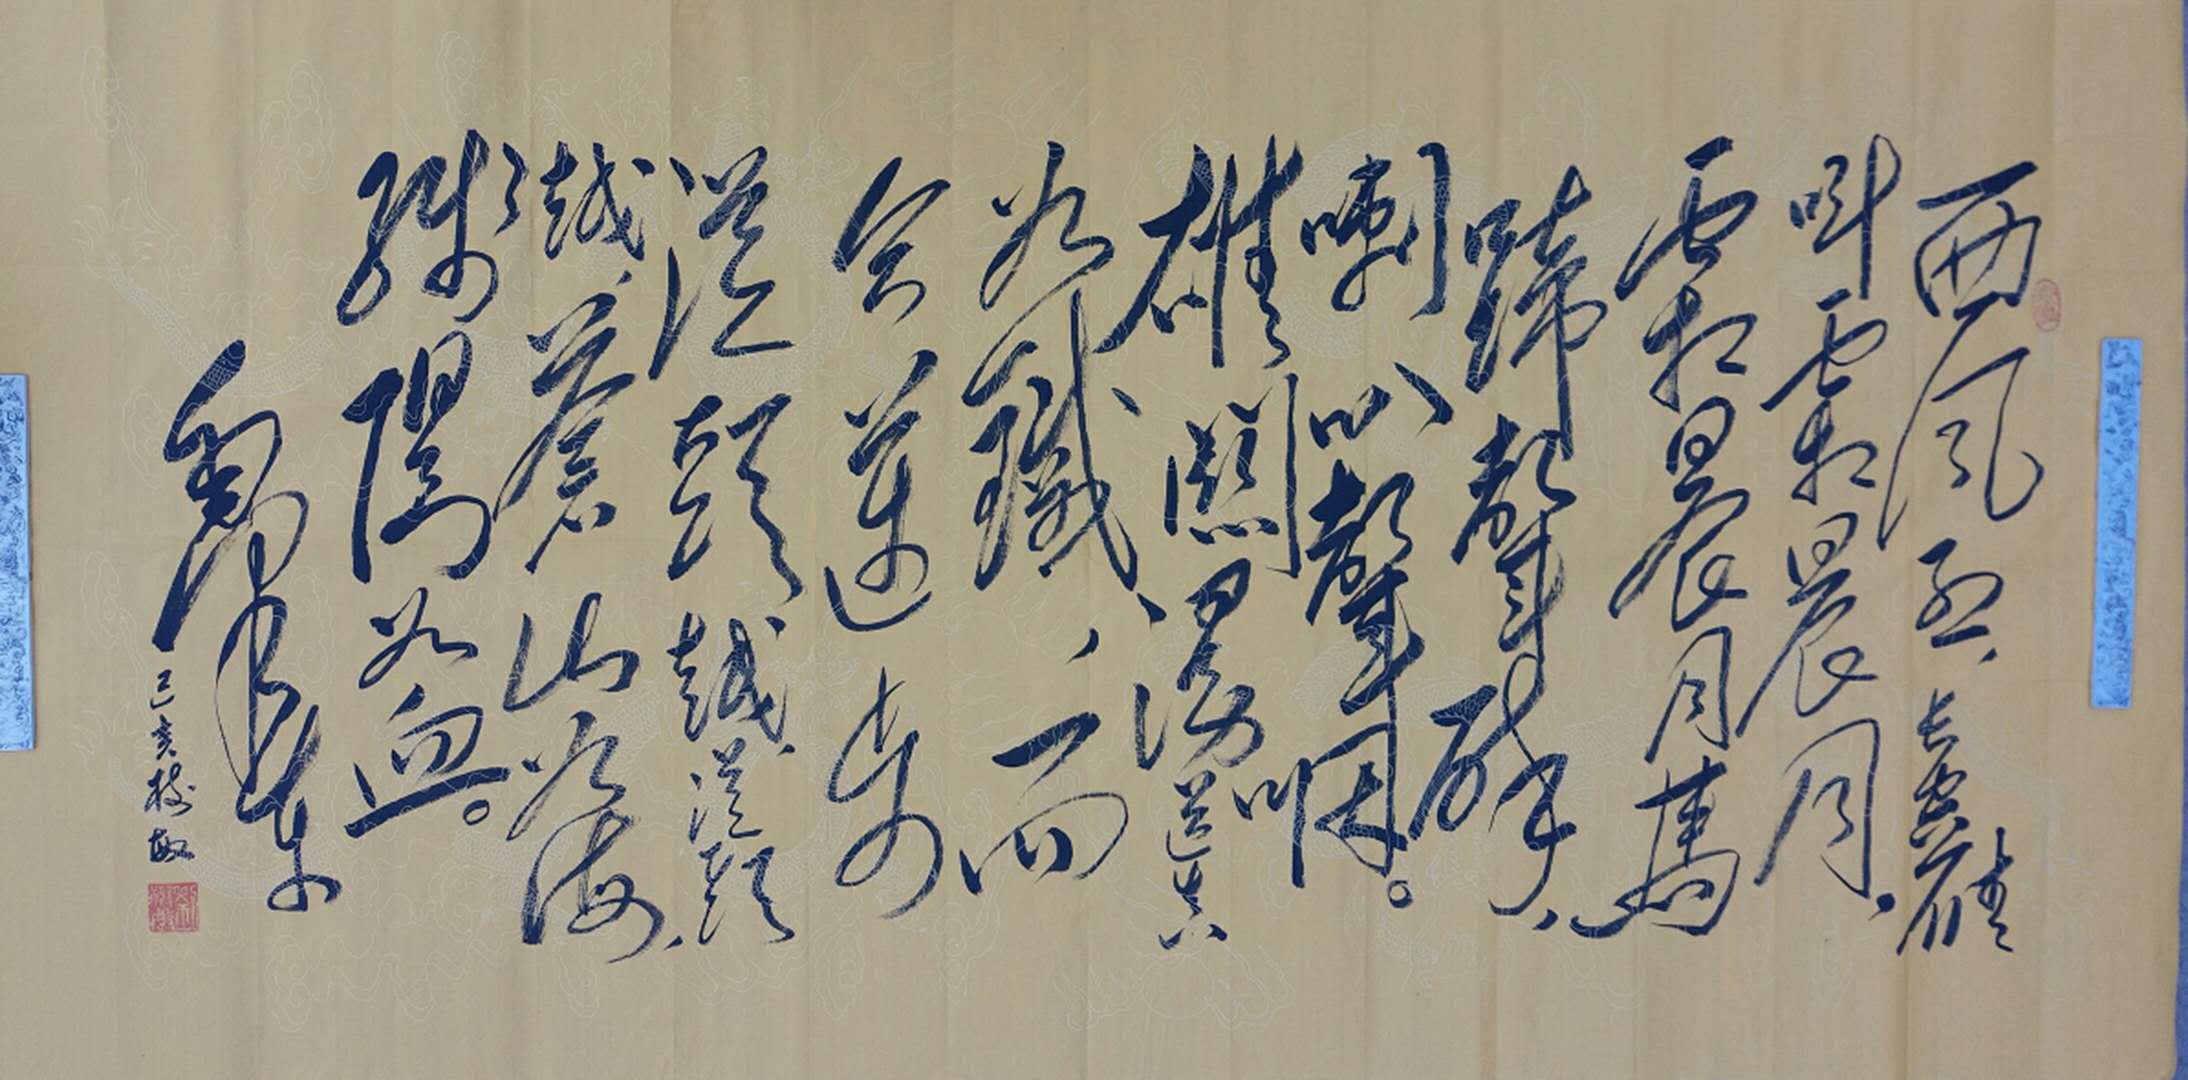 西风烈,长空雁
叫霜晨月。
霜晨月,马
蹄聲碎,
喇叭聲咽。
雄關漫道真
如鐵,而
今邁步
從頭越。從頭
越,蒼山如海,
殘陽如血。
毛澤東
己亥 樹敏